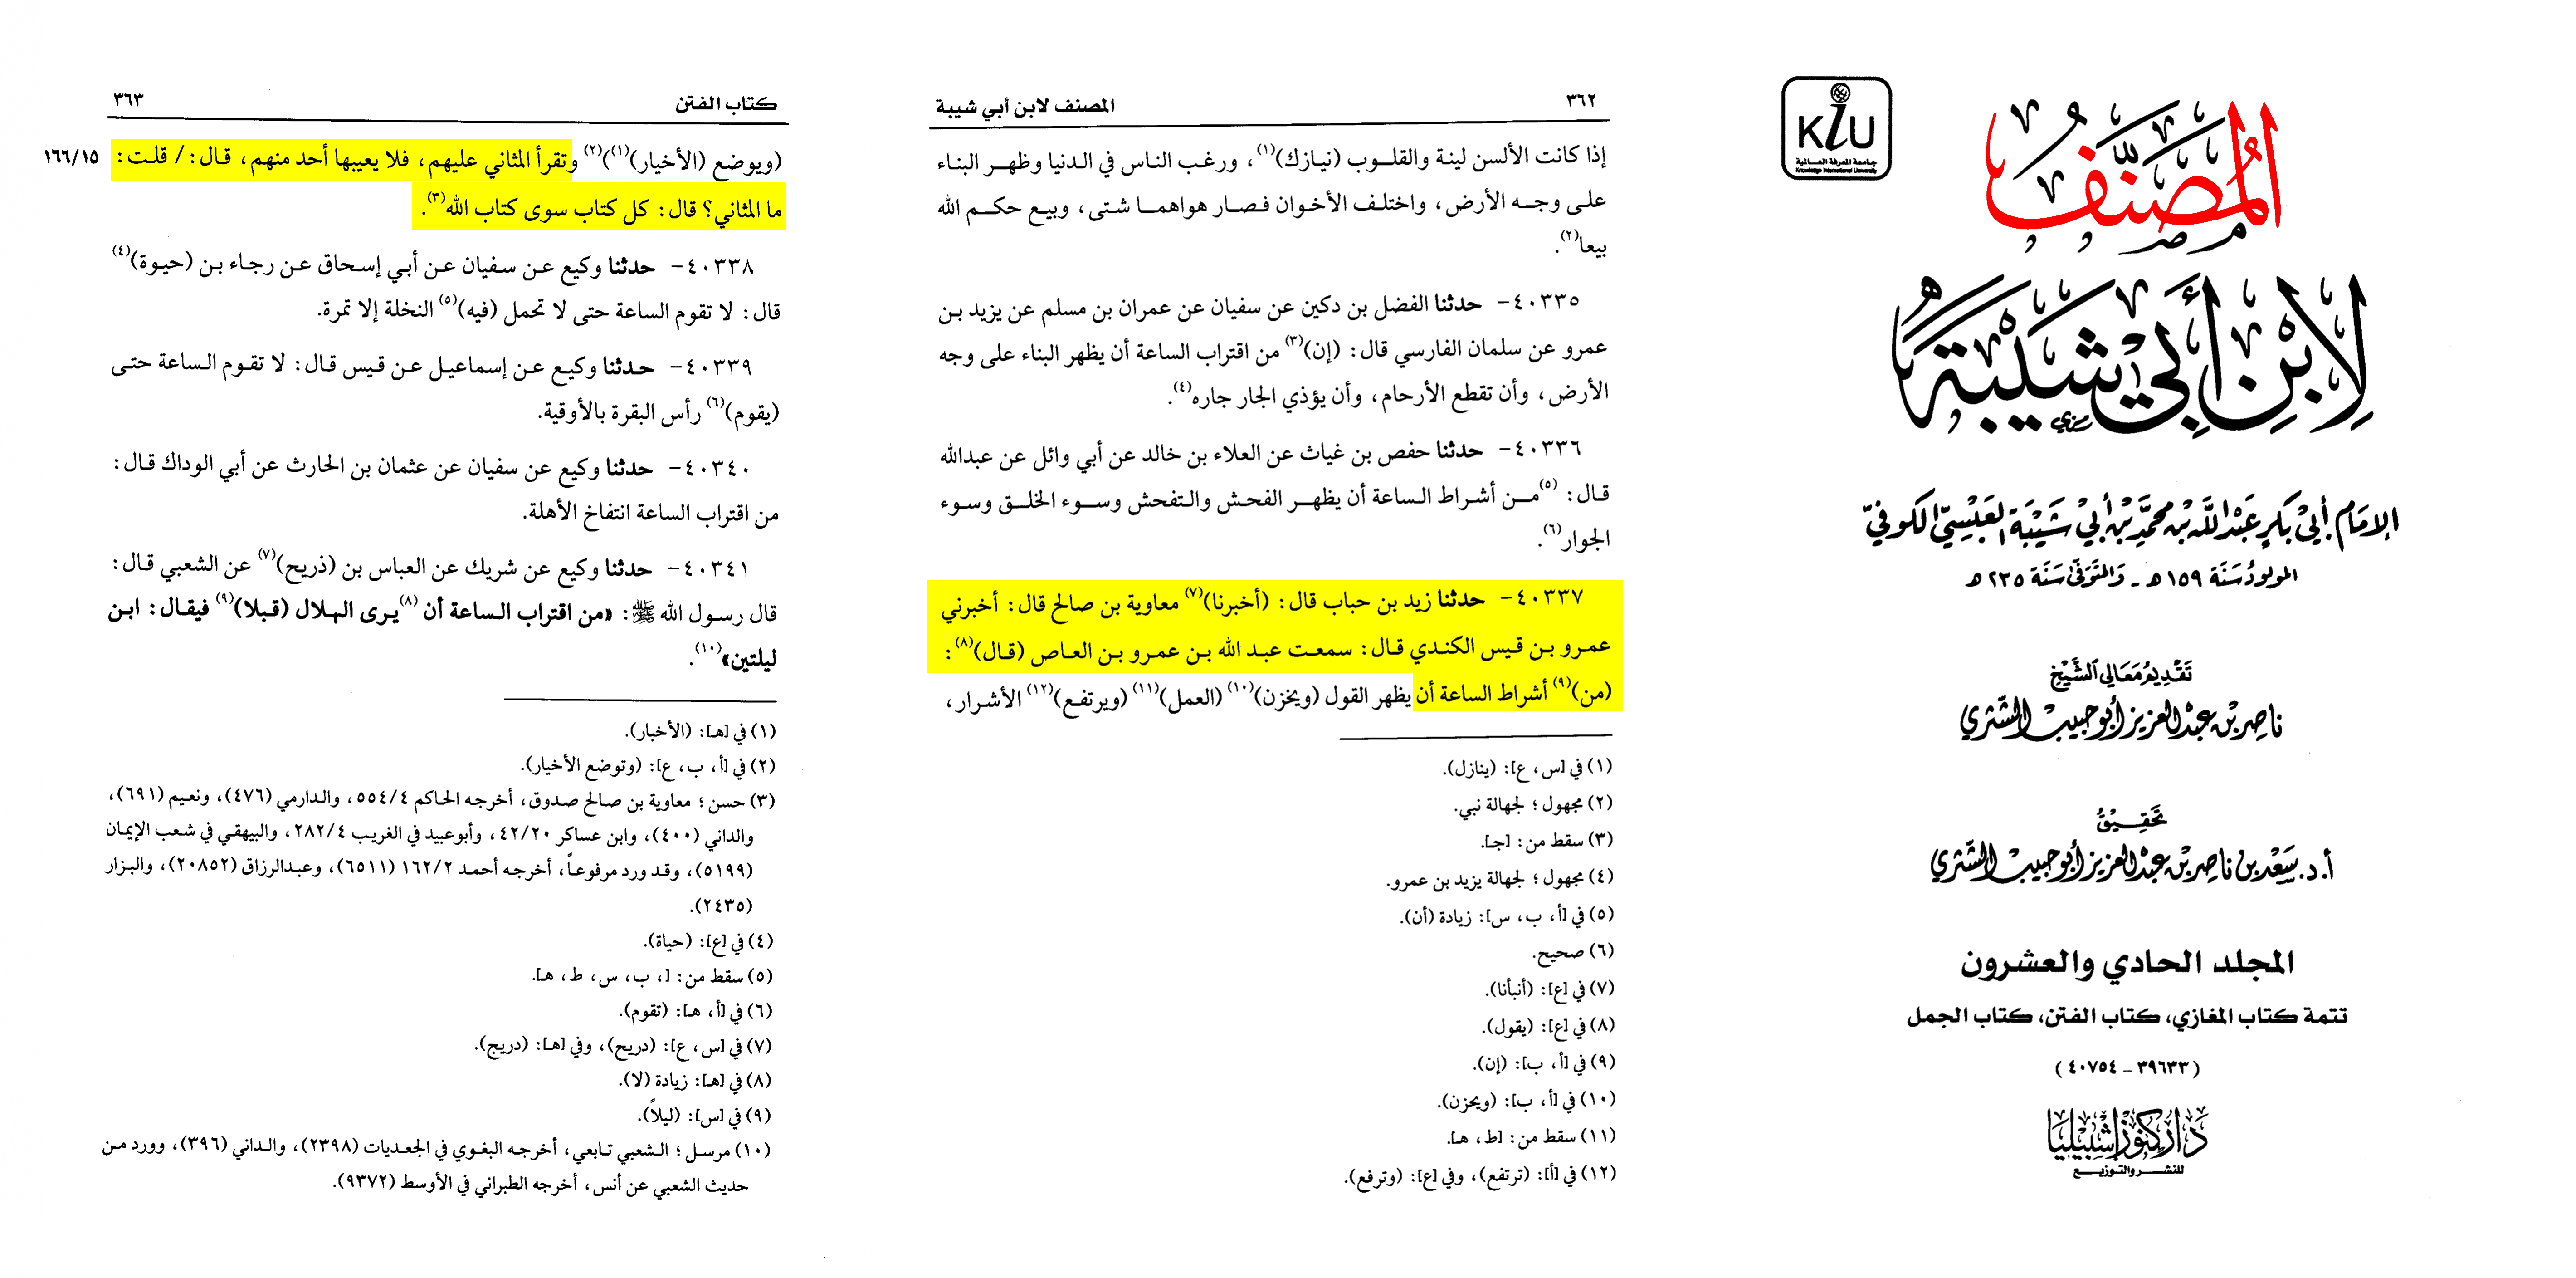 KiU
جامعة المعرفة العالمية
Knowledge International University
المُصَنَّفُ
لِابْنِ أَبِي شَيْبَةَ
الإمَام أَبِيْ بَكرٍ عَبْدِ اللَّه بْن محمَّدِ بْن أبيْ شَيْبَة العَبْسِيّ الكوفيّ
المولودُ سَنَة ١٥٩ هـ - وَالمتَوفىٰ سَنَة ٢٣٥ هـ
تَقْديمُ مَعَالي الشَّيْخ
ناصِر بْن عَبْد العَزيز أبو حبيب الشّثري
تَحقِيقُ
أ. د. سَعْد بْن ناصِر بْن عَبْد العَزيز أبو حبيب الشّثري
المجلد الحادي والعشرون
تتمة كتاب المغازي، كتاب الفتن، كتاب الجمل
( ٣٩٦٣٣ - ٤٠٧٥٤ )
دَار كنوز إشبيليا
للنشــر والتوزيــع
٣٦٢
المصنف لابن أبي شيبة
إذا كانت الألسن لينة والقلوب (نيازك)(١)، ورغب الناس في الدنيا وظهر البناء
على وجه الأرض، واختلف الأخوان فصار هواهما شتى، وبيع حكم الله
بيعا(٢).
٤٠٣٣٥- حدثنا الفضل بن دكين عن سفيان عن عمران بن مسلم عن يزيد بن
عمرو عن سلمان الفارسي قال: (إن)(٣) من اقتراب الساعة أن يظهر البناء على وجه
الأرض، وأن تقطع الأرحام، وأن يؤذي الجار جاره(٤).
٤٠٣٣٦- حدثنا حفص بن غياث عن العلاء بن خالد عن أبي وائل عن عبدالله
قال: (٥)من أشراط الساعة أن يظهر الفحش والتفحش وسوء الخلق وسوء
الجوار(٦).
٤٠٣٣٧- حدثنا زيد بن حباب قال: (أخبرنا)(٧) معاوية بن صالح قال: أخبرني
عمرو بن قيس الكندي قال: سمعت عبد الله بن عمرو بن العاص (قال)(٨):
(من)(٩) أشراط الساعة أن يظهر القول (ويخزن)(١٠) (العمل)(١١) (ويرتفع)(١٢) الأشرار،
(١) في [س، ع]: (ينازل).
(٢) مجهول؛ لجهالة نبي.
(٣) سقط من: [جـ].
(٤) مجهول؛ لجهالة يزيد بن عمرو.
(٥) في [أ، ب، س]: زيادة (أن).
(٦) صحيح.
(٧) في [ع]: (أنبأنا).
(٨) في [ع]: (يقول).
(٩) في [أ، ب]: (إن).
(١٠) في [أ، ب]: (ويحزن).
(١١) سقط من: [ط، هـ].
(١٢) في [أ]: (ترتفع)، وفي [ع]: (وترفع).
كتاب الفتن
٣٦٣
(ويوضع (الأخيار)(١))(٢) وتقرأ المثاني عليهم، فلا يعيبها أحد منهم، قال: / قلت:
١٦٦/١٥
ما المثاني؟ قال: كل كتاب سوى كتاب الله(٣).
٤٠٣٣٨- حدثنا وكيع عن سفيان عن أبي إسحاق عن رجاء بن (حيوة)(٤)
قال: لا تقوم الساعة حتى لا تحمل (فيه)(٥) النخلة إلا تمرة.
٤٠٣٣٩- حدثنا وكيع عن إسماعيل عن قيس قال: لا تقوم الساعة حتى
(يقوم)(٦) رأس البقرة بالأوقية.
٤٠٣٤٠- حدثنا وكيع عن سفيان عن عثمان بن الحارث عن أبي الوداك قال:
من اقتراب الساعة انتفاخ الأهلة.
٤٠٣٤١- حدثنا وكيع عن شريك عن العباس بن (ذريح)(٧) عن الشعبي قال:
قال رسول الله ﷺ: «من اقتراب الساعة أن (٨)يرى الهلال (قبلا)(٩) فيقال: ابن
ليلتين»(١٠).
(١) في [هـ]: (الأخبار).
(٢) في [أ، ب، ع]: (وتوضع الأخيار).
(٣) حسن؛ معاوية بن صالح صدوق، أخرجه الحاكم ٥٥٤/٤، والدارمي (٤٧٦)، ونعيم (٦٩١)،
والداني (٤٠٠)، وابن عساكر ٤٢/٢٠، وأبوعبيد في الغريب ٢٨٢/٤، والبيهقي في شعب الإيمان
(٥١٩٩)، وقد ورد مرفوعاً، أخرجه أحمد ١٦٢/٢ (٦٥١١)، وعبدالرزاق (٢٠٨٥٢)، والبزار
(٢٤٣٥).
(٤) في [ع]: (حياة).
(٥) سقط من: [، ب، س، ط، هـ].
(٦) في [أ، هـ]: (تقوم).
(٧) في [س، ع]: (دريح)، وفي [هـ]: (دريج).
(٨) في [هـ]: زيادة (لا).
(٩) في [س]: (ليلاً).
(١٠) مرسل؛ الشعبي تابعي، أخرجه البغوي في الجعديات (٢٣٩٨)، والداني (٣٩٦)، وورد من
حديث الشعبي عن أنس، أخرجه الطبراني في الأوسط (٩٣٧٢).